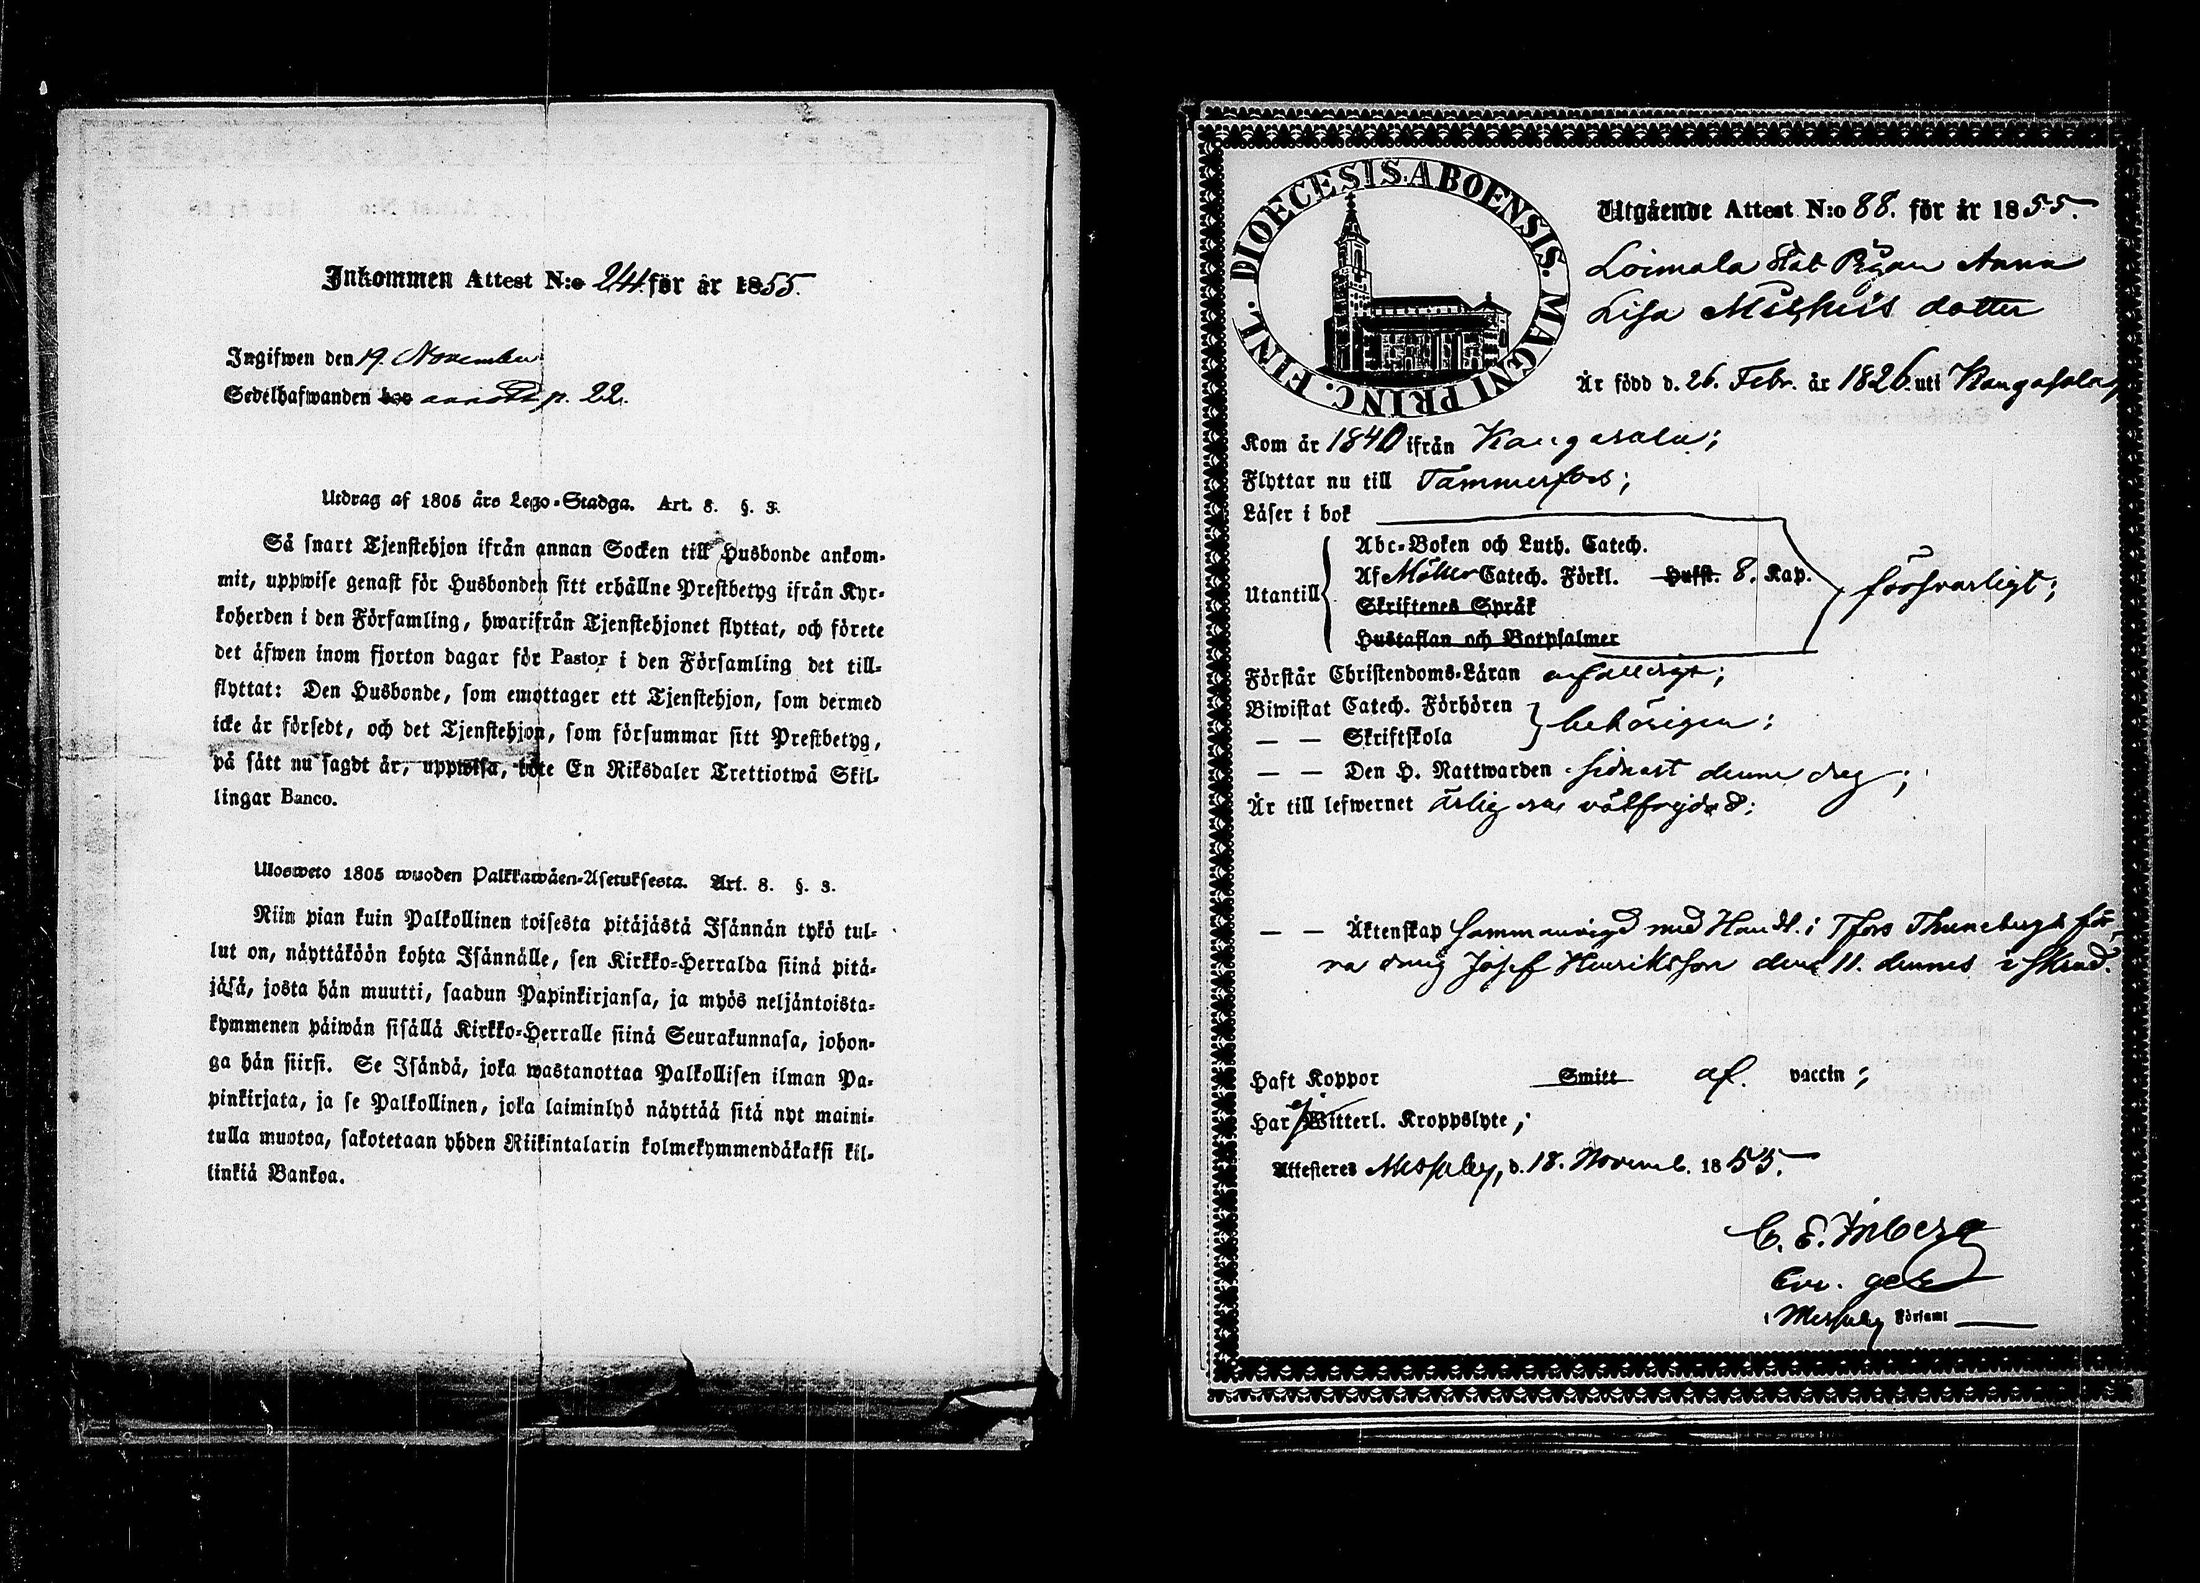 Inkommen Attest N:o 244 för år 1855.
Ingifwen den 19. November
Sedelhafwanden hos p. 22.
Utdrag af 1805 års Lego-Stadga. Art. 8. §. 3.
Så snart Tjenstehjon ifrån annan Socken till Husbonde ankom-
mit, uppwise genast för Husbonden sitt erhållne Prestbetyg ifrån Kyr-
koherden i den Församling, hwarifrån Tjenstehjonet flyttat, och förete
det äfwen inom fjorton dagar för Pastor i den Församling det till-
flyttat: Den Husbonde, som emottager ett Tjenstehjon, som dermed
icke är försedt, och det Tjenstehjon, som försummar sitt Prestbetyg,
på sätt nu sagdt är, uppwisa, böte En Riksdaler Trettiotwå Skil-
lingar Banco.
Ulosweto 1805 wuoden Palkkawäen-Asetuksesta. Art. 8. §. 3.
Niin pian kuin Palkollinen toisesta pitäjästä Isännän tykö tul-
lut on, näyttäköön kohta Isännälle, sen Kirkko-Herralda siinä pitä-
jäsä, josta hän muutti, saadun Papinkirjansa, ja myös neljäntoista-
kymmenen päiwän sisällä Kirkko-Herralle siinä Seurakunnasa, johon-
ga hän siirsi. Se Isändä, joka wastanottaa Palkollisen ilman Pa-
pinkirjata, ja se Palkollinen, joka laiminlyö näyttää sitä nyt maini-
tulla muotoa, sakotetaan yhden Riikintalarin kolmekymmendäkaksi kil-
linkiä Bankoa.
DIOECESIS. ABOENSIS. MAGNI PRINC. FINL.
Utgående Attest N:o 88. för år 1855.
Loimala Pigan Anna
Lisa Michelsdotter
Är född d. 26. Febr. år 1826. uti Kangasala
Kom år 1840 ifrån Kangasala;
Flyttar nu till Tammerfors;
Läser i bok
Utantill
Abc-Boken och Luth. Catech.
Af Möllers Catech. Förkl. Hufst. 8. Kap.
Skriftenes Språk
Hustaflan och Botpsalmer
försvarligt;
Förstår Christendoms-Läran enfalligt;
Biwistat Catech. Förhören
— — Skriftskola
behörigen;
— — Den H. Nattwarden sidnast denne dag;
Är till lefwernet ärlig och välfrejdad;
— — Äktenskap Sammanvigd med Handl. i Tfors Thunebergs för-
ra dräng Josef Henriksson den 11. dennes
Haft Koppor Smitt af. vaccin;
Har ej Witterl. Kroppslyte;
Attesteres Messuby, d. 18. Novemb. 1855.
C. E. Inberg
i Messuby Församl